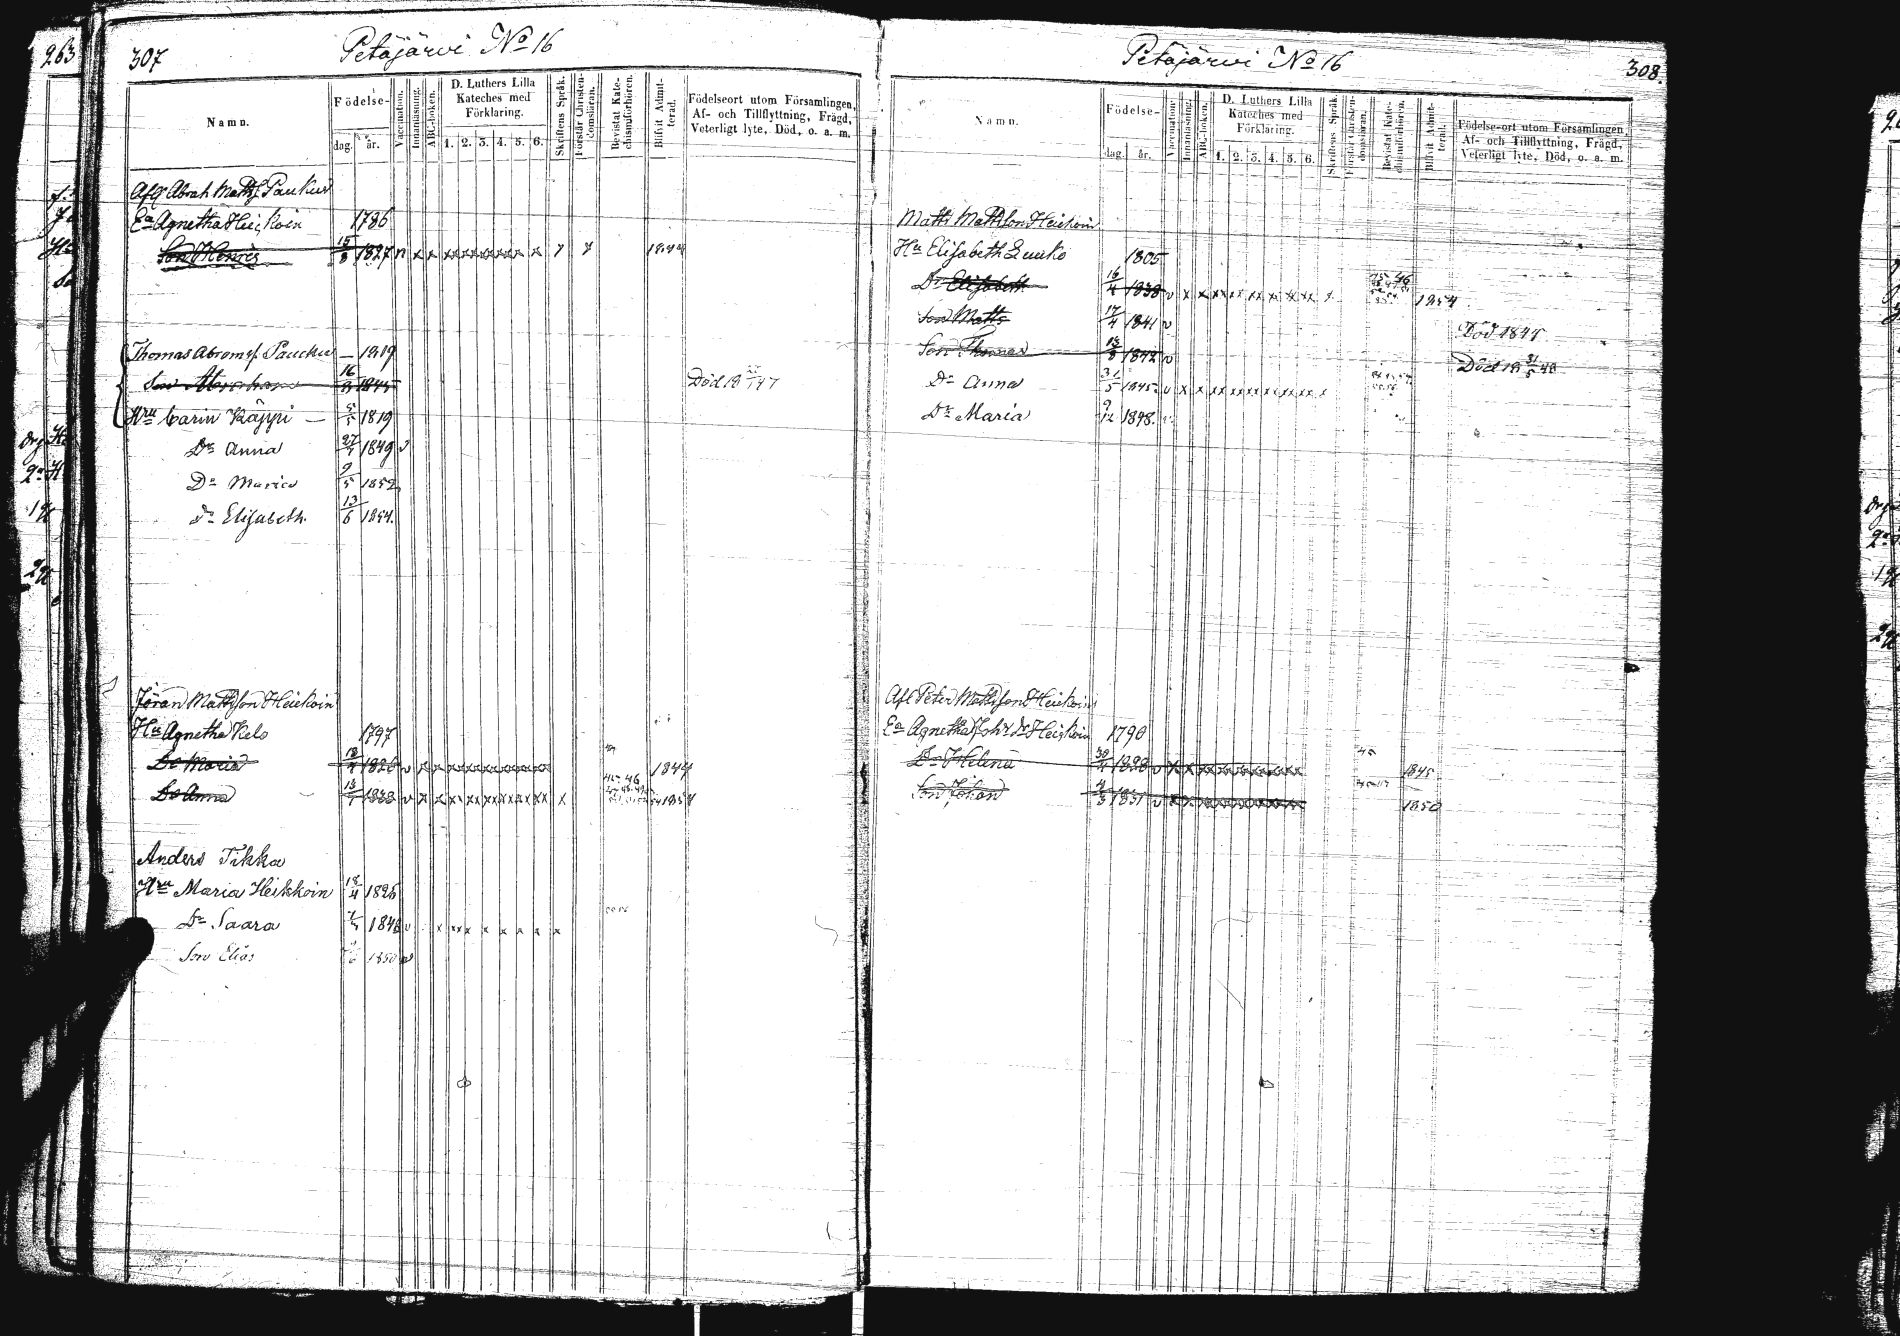 263
307
Petäjärvi No 16
Namn.
Födelse-
dag. år.
Vaccination.
Innanläsning.
ABC-boken.
D. Luthers Lilla
Kateches med
Förklaring.
1. 2. 3. 4. 5. 6.
Skriftens Språk.
Förstår Christen-
domsläran.
Bevistat Kate-
chismiförhören.
Blifvit Admit-
terad.
Födelseort utom Församlingen,
Af- och Tillflyttning, Frägd,
Veterligt lyte, Död, o. a. m.
Abrah Matts Paukku
Ea Agnetha Heiskoin 1786
Son Henric 15/8 1827 n x x x x x x x x x 1844
Thomas Abramss. Paucku — 1819
Son Abraham 16/3 1845 Död 18 /47
Hru Carin Räppi — 5/5 1819
Dr Anna 27/7 1849 v
Dr Maria 9/5 1852
Dr Elisabeth. 13/6 1854.
Jöran Mattsson Heiskoin
Hu Agnetha Kelo 1797
Dr Maria 18/4 1826 v x x x x x x x x x 1844
Dr Anna 13/7 1838 v x x x x x x x x x x 45 46 1854
Anders Tikka
Hru Maria Heiskoin 18/4 1826
Dr Saara 1848 v x x x x x x x x x
Son Elias 1850 v
Petäjärvi No 16
308.
Namn.
Födelse-
dag. år.
Vaccination.
Innanläsning.
ABC-boken.
D. Luthers Lilla
Kateches med
Förklaring.
1. 2. 3. 4. 5. 6.
Skriftens Språk.
Förstår Christen-
domsläran.
Bevistat Kate-
chismiförhören.
Blifvit Admit-
terad.
Födelse-ort utom Församlingen,
Af- och Tillflyttning, Frägd,
Veterligt lyte, Död, o. a. m.
Matts Mattsson Heiskoin
Hu Elisabeth 1805
Dr Elisabeth 16/4 1838 v x x x x x x x x x x 45 46 1854
Son Matts 17/4 1841 v Död 1845
Son Thomas 13/8 1842 v Död 18 31/5 48
Dr Anna 31/5 1845. v x x x x x x x x x
Dr Maria 9/12 1848.
Afl Peter Mattsson Heiskoin
Ea Agnetha Joh: dr Heiskoin 1790
Dr Helena 30/4 1828 v x x x x x x x x 45 1845
Son Johan 4/3 1831 v x x x x x x x x 1850